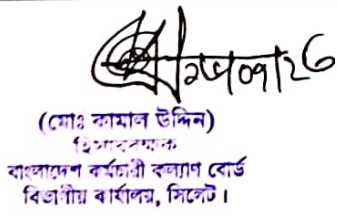 (মোঃ কামাল উদ্দিন)
হিসাবরক্ষক
বাংলাদেশ কর্মচারী কল্যাণ বোর্ড
বিভাগীয় কার্যালয়, সিলেট।